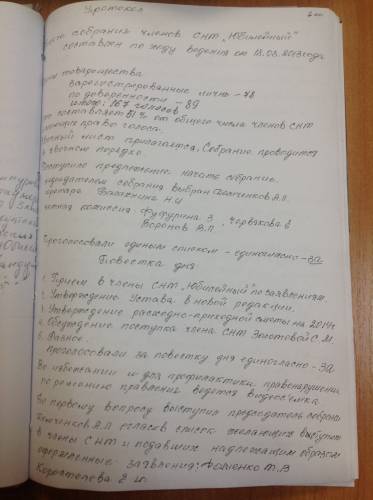 Протокол
собрания членов СНТ "Юбилейный"
составлен по ходу ведения от 18.05.2013 года
товарищества
зарегистрированные лично - 78
по доверенности - 89
итого: 167 голосов
составляет 51% от общего числа членов СНТ
право голоса.
лист прилагается. Собрание проводится
в порядке.
Поступило предложение начать собрание.
председателем собрания выбран А.П.
Н.И.
комиссия: З. Червякова В
Воронов В.П.
Проголосовали единым списком - единогласно - ЗА
Повестка дня
1. Прием в члены СНТ "Юбилейный" по заявлениям.
2. Утверждение Устава в новой редакции.
3. Утверждение расходно-приходной сметы на 2014
4. Обсуждение поступка члена СНТ Золотовой С.М.
5. Разное.
Проголосовали за повестку дня единогласно - ЗА
Во избежании и для профилактики правонарушений
по решению правления ведется видеосъемка.
По первому вопросу выступил председатель собрания
А.П. огласив список желающих вступить
в члены СНТ и подавших надлежащим образом
оформленные заявления: Фоменко Т.В
Коростелева Е.И.